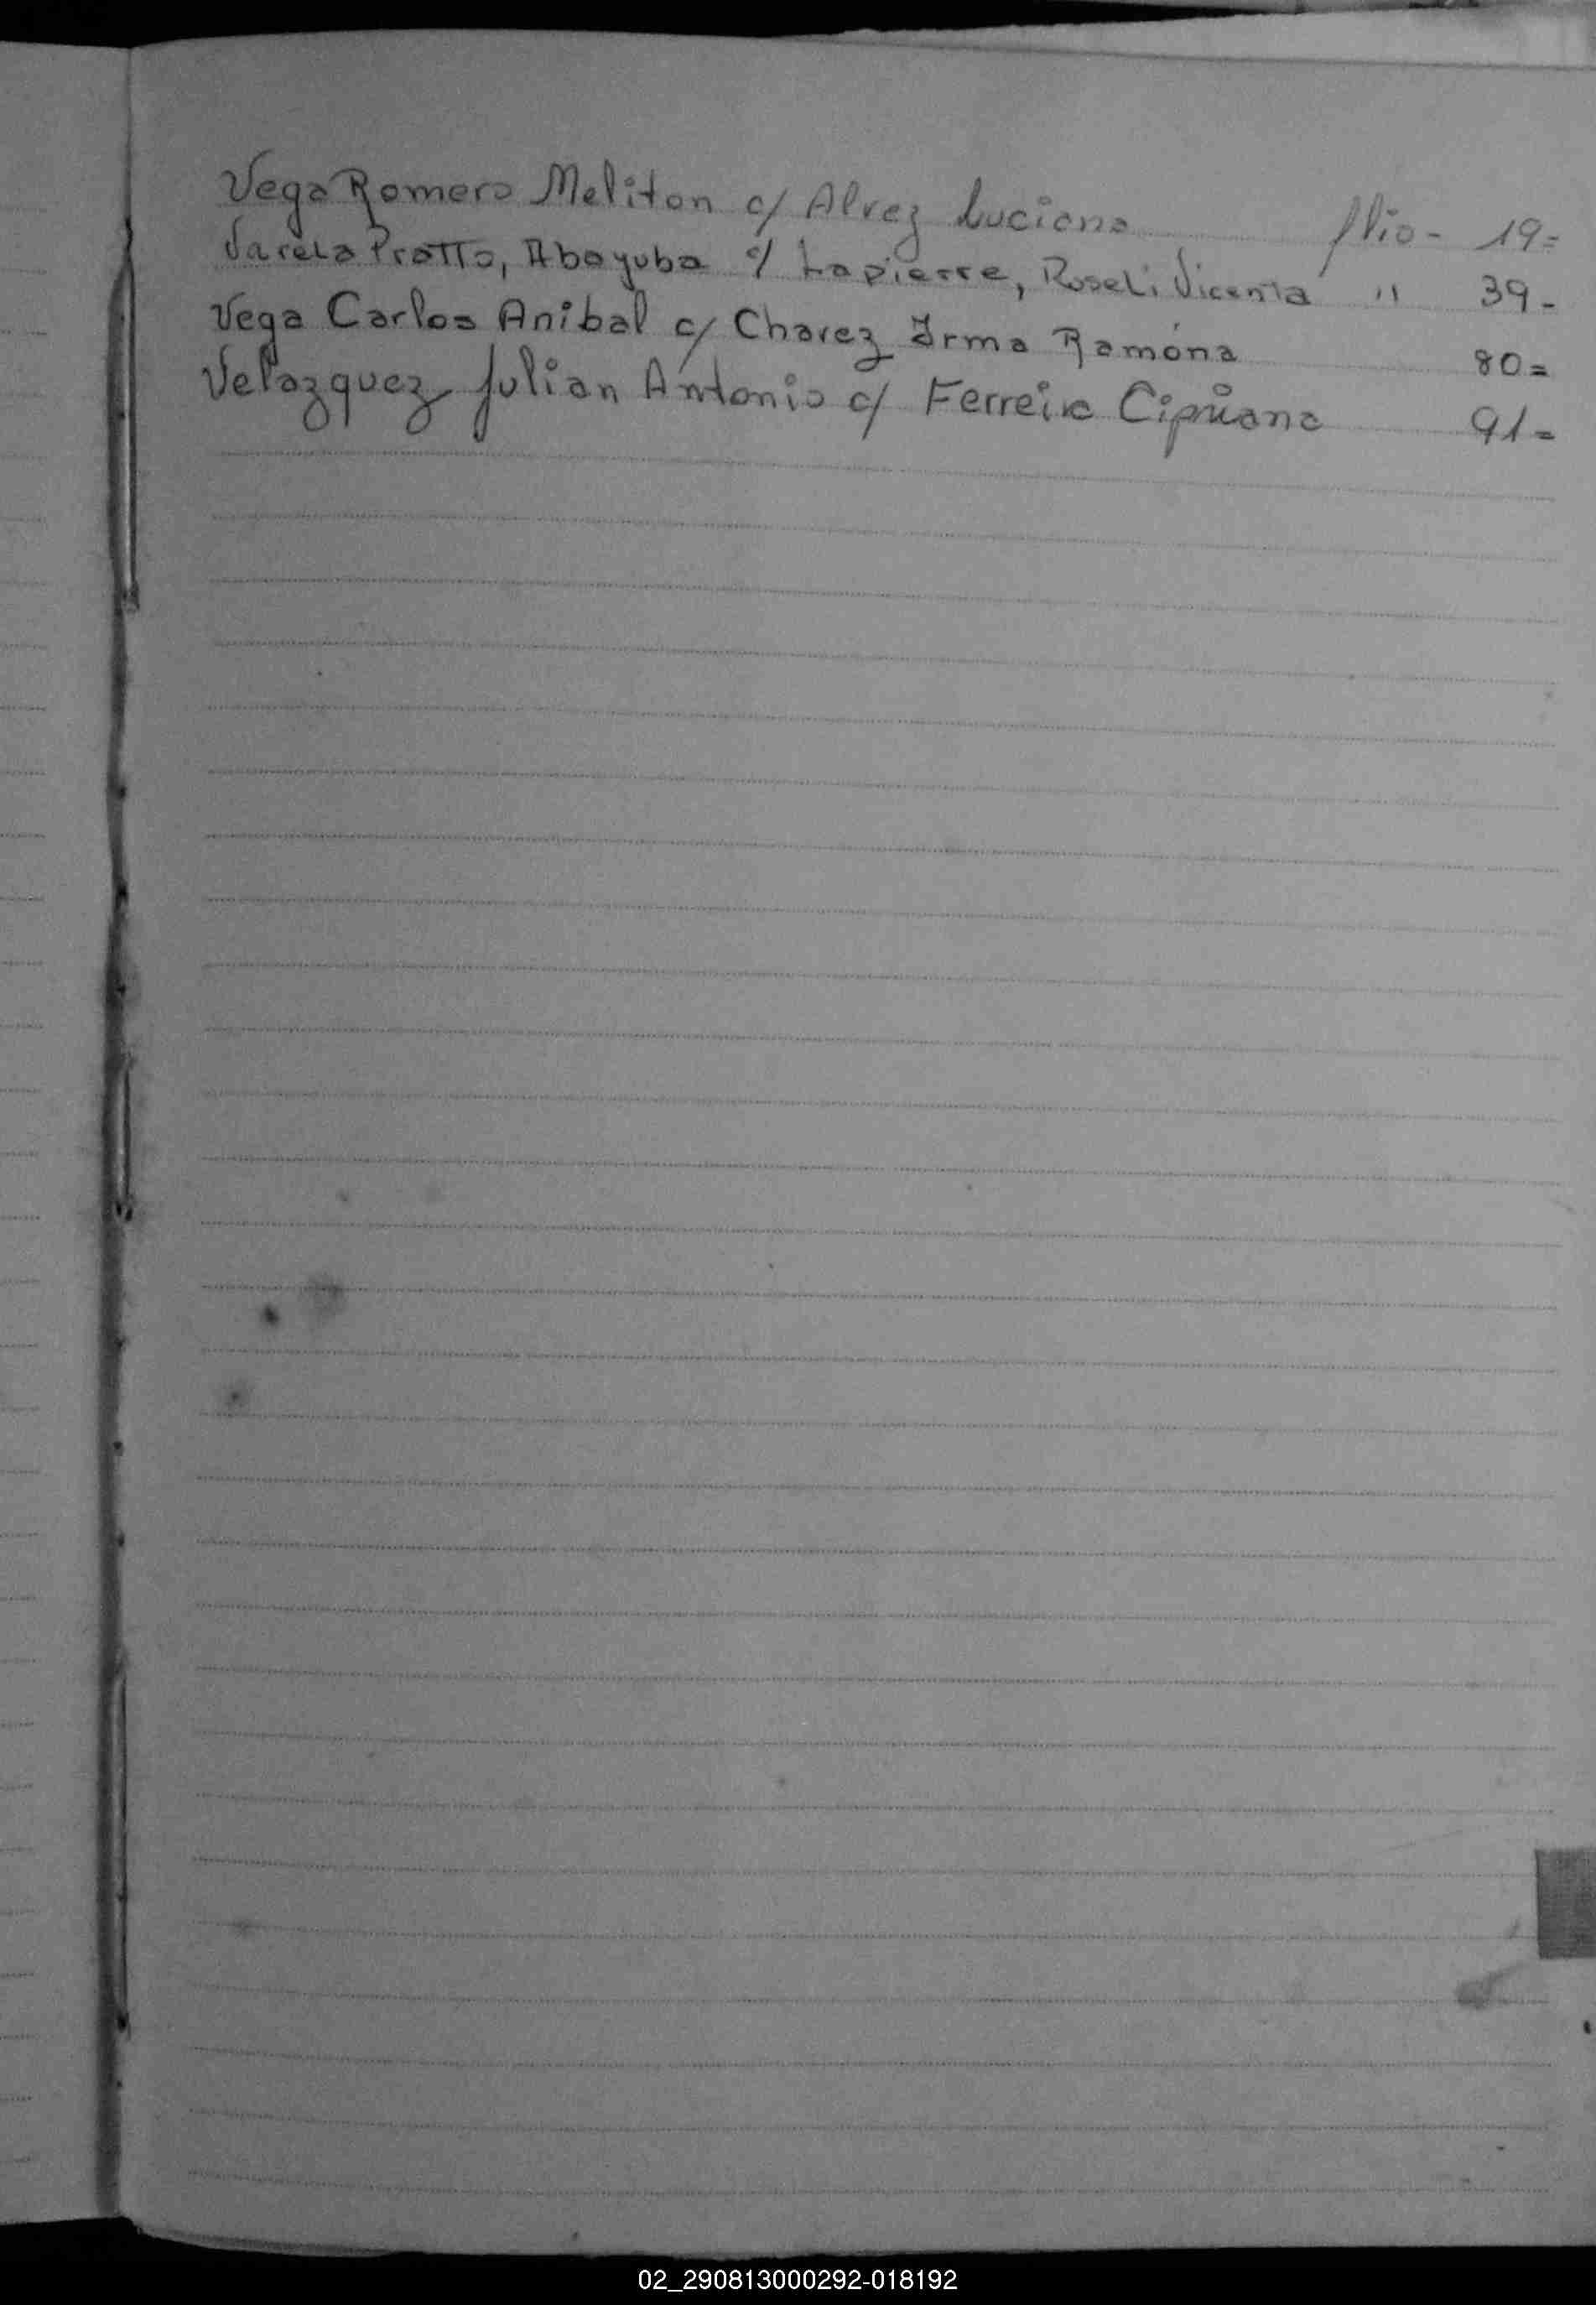 Vega Romero Meliton c/ Alvez Luciana flio - 19=
Varela Pratto, Abayuba c/ Lapierre, Roseli Vicenta " 39-
Vega Carlos Anibal c/ Chavez Irma Ramóna 80=
Velazquez Julian Antonio c/ Ferreira Cipriana 91=
02_290813000292-018192